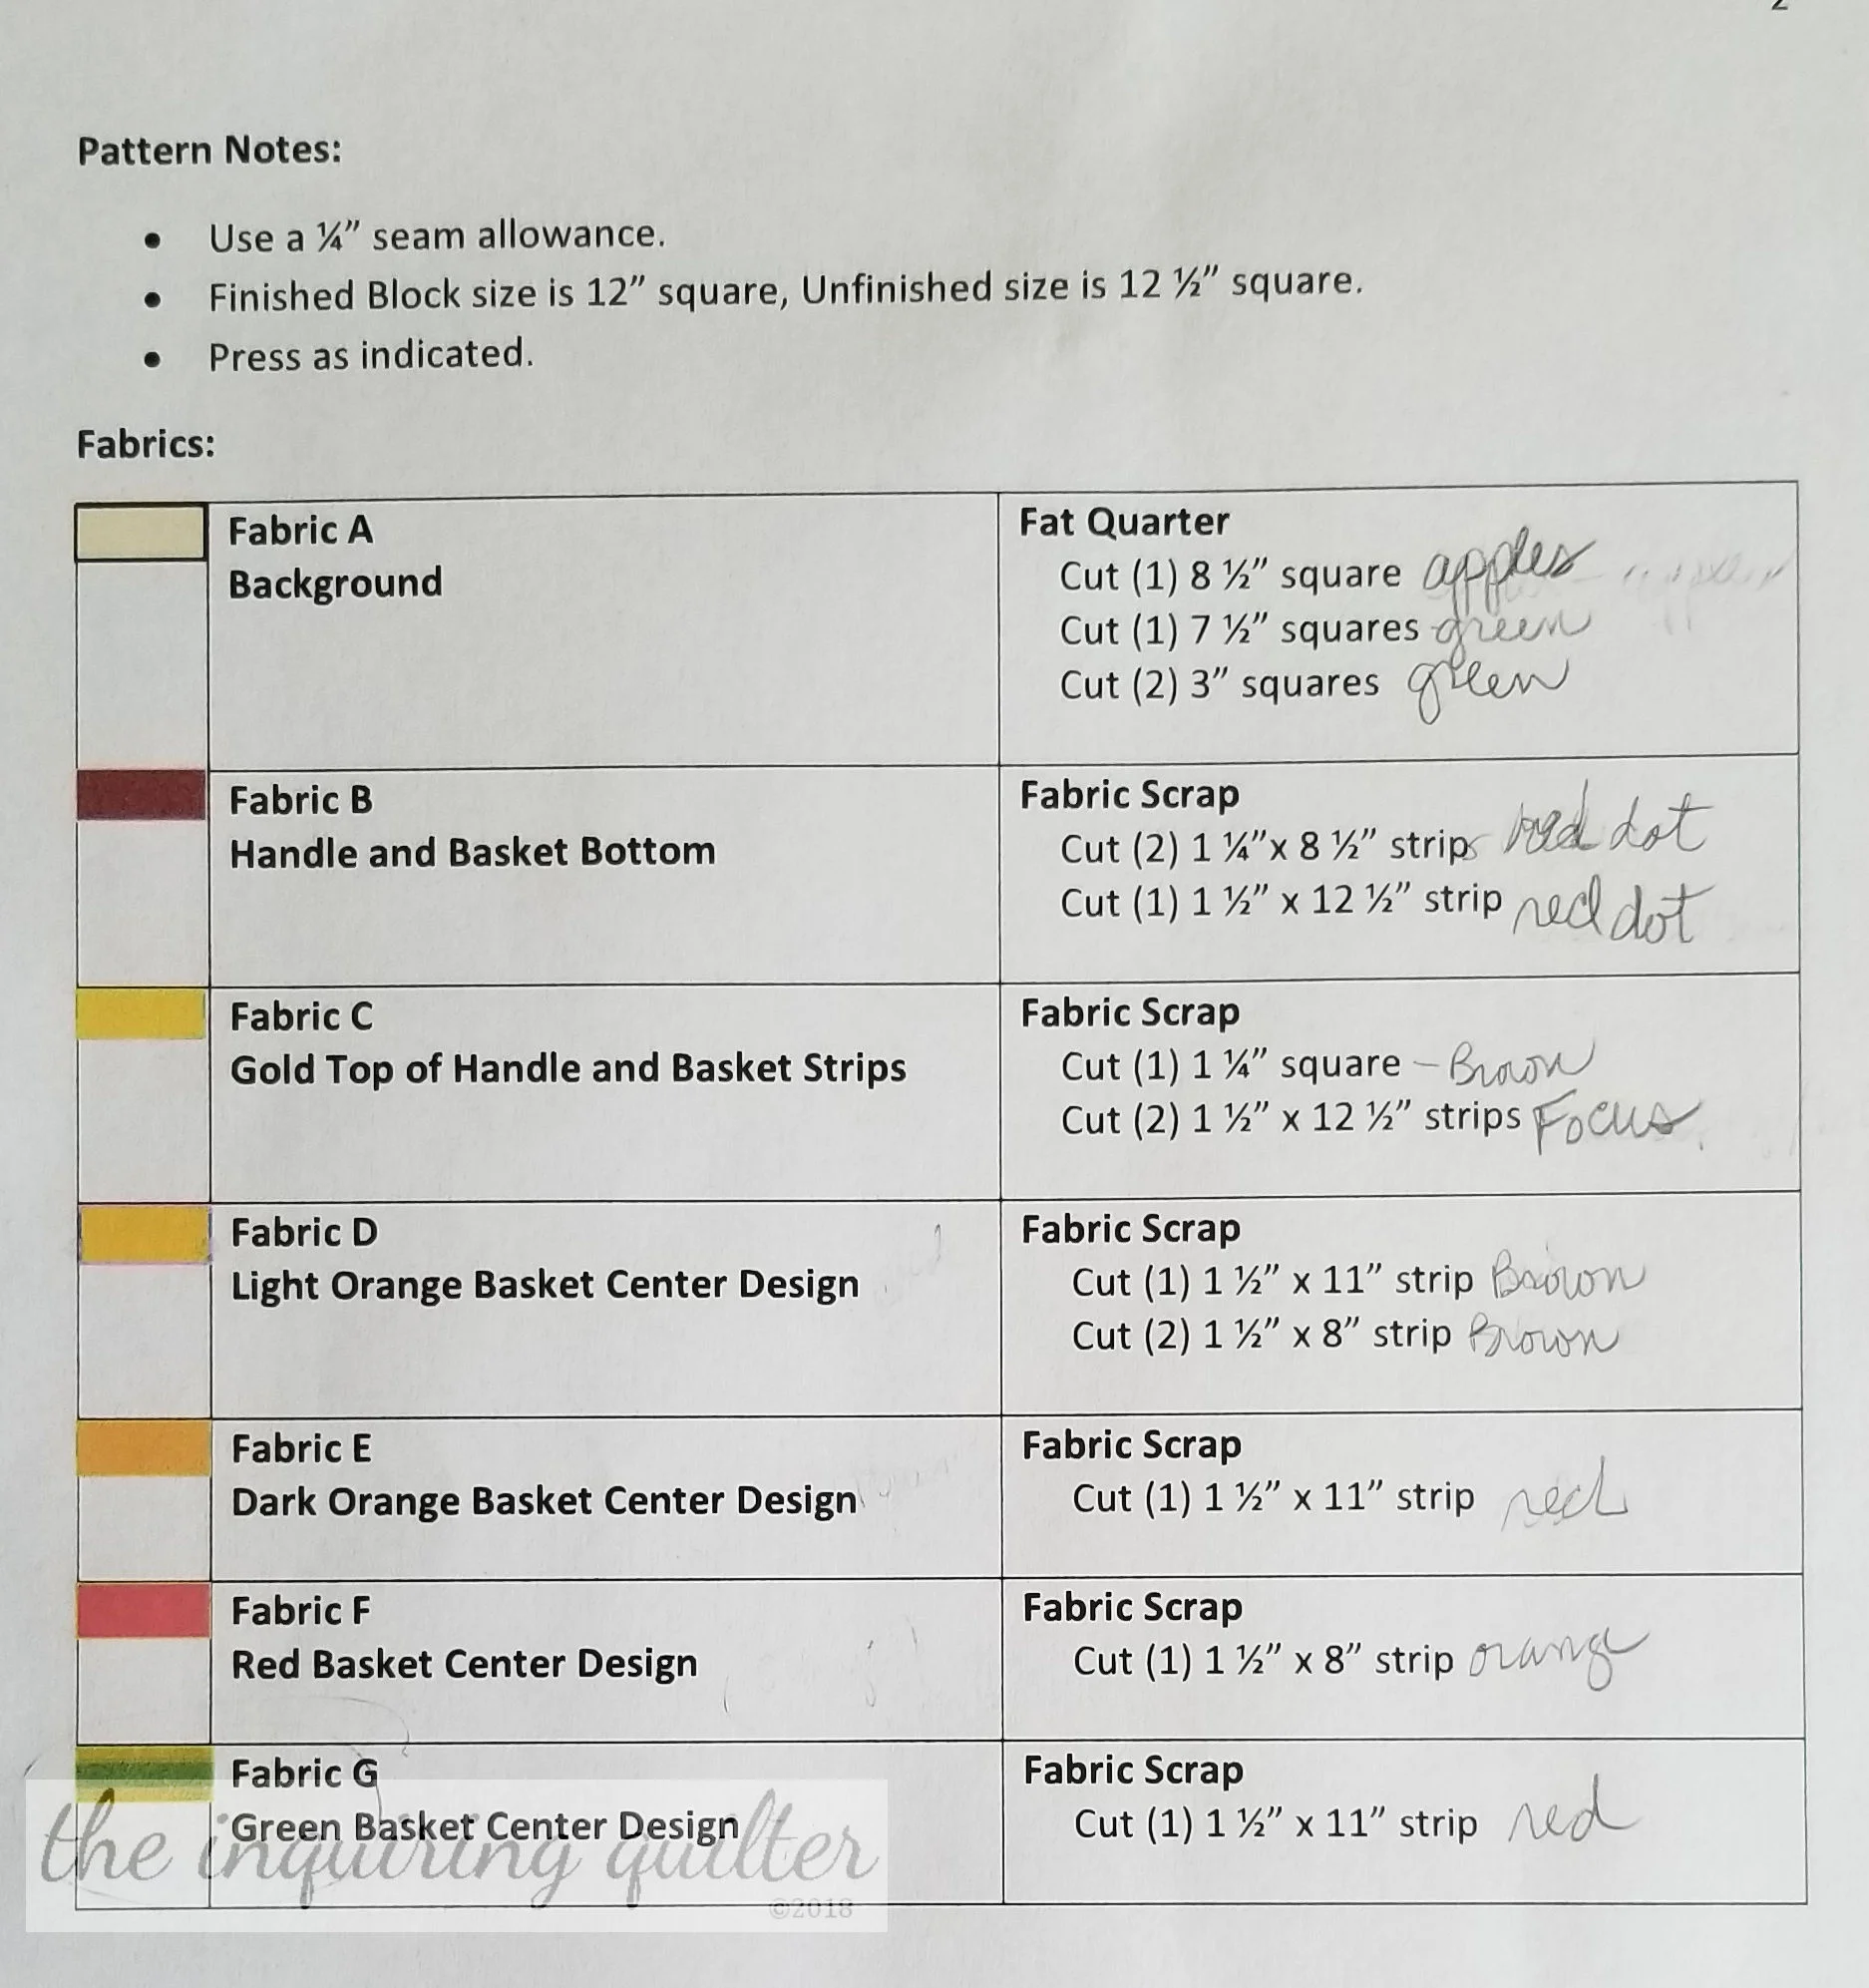 2
Pattern Notes:
• Use a ¼” seam allowance.
• Finished Block size is 12” square, Unfinished size is 12 ½” square.
• Press as indicated.
Fabrics:
Fabric A
Background
Fat Quarter
Cut (1) 8 ½” square apples
Cut (1) 7 ½” squares green
Cut (2) 3” squares green
Fabric B
Handle and Basket Bottom
Fabric Scrap
Cut (2) 1 ¼”x 8 ½” strips red dot
Cut (1) 1 ½” x 12 ½” strip red dot
Fabric C
Gold Top of Handle and Basket Strips
Fabric Scrap
Cut (1) 1 ¼” square – Brown
Cut (2) 1 ½” x 12 ½” strips Focus
Fabric D
Light Orange Basket Center Design
Fabric Scrap
Cut (1) 1 ½” x 11” strip Brown
Cut (2) 1 ½” x 8” strip Brown
Fabric E
Dark Orange Basket Center Design
Fabric Scrap
Cut (1) 1 ½” x 11” strip red
Fabric F
Red Basket Center Design
Fabric Scrap
Cut (1) 1 ½” x 8” strip orange
Fabric G
Green Basket Center Design
Fabric Scrap
Cut (1) 1 ½” x 11” strip red
the inquiring quilter
©2018